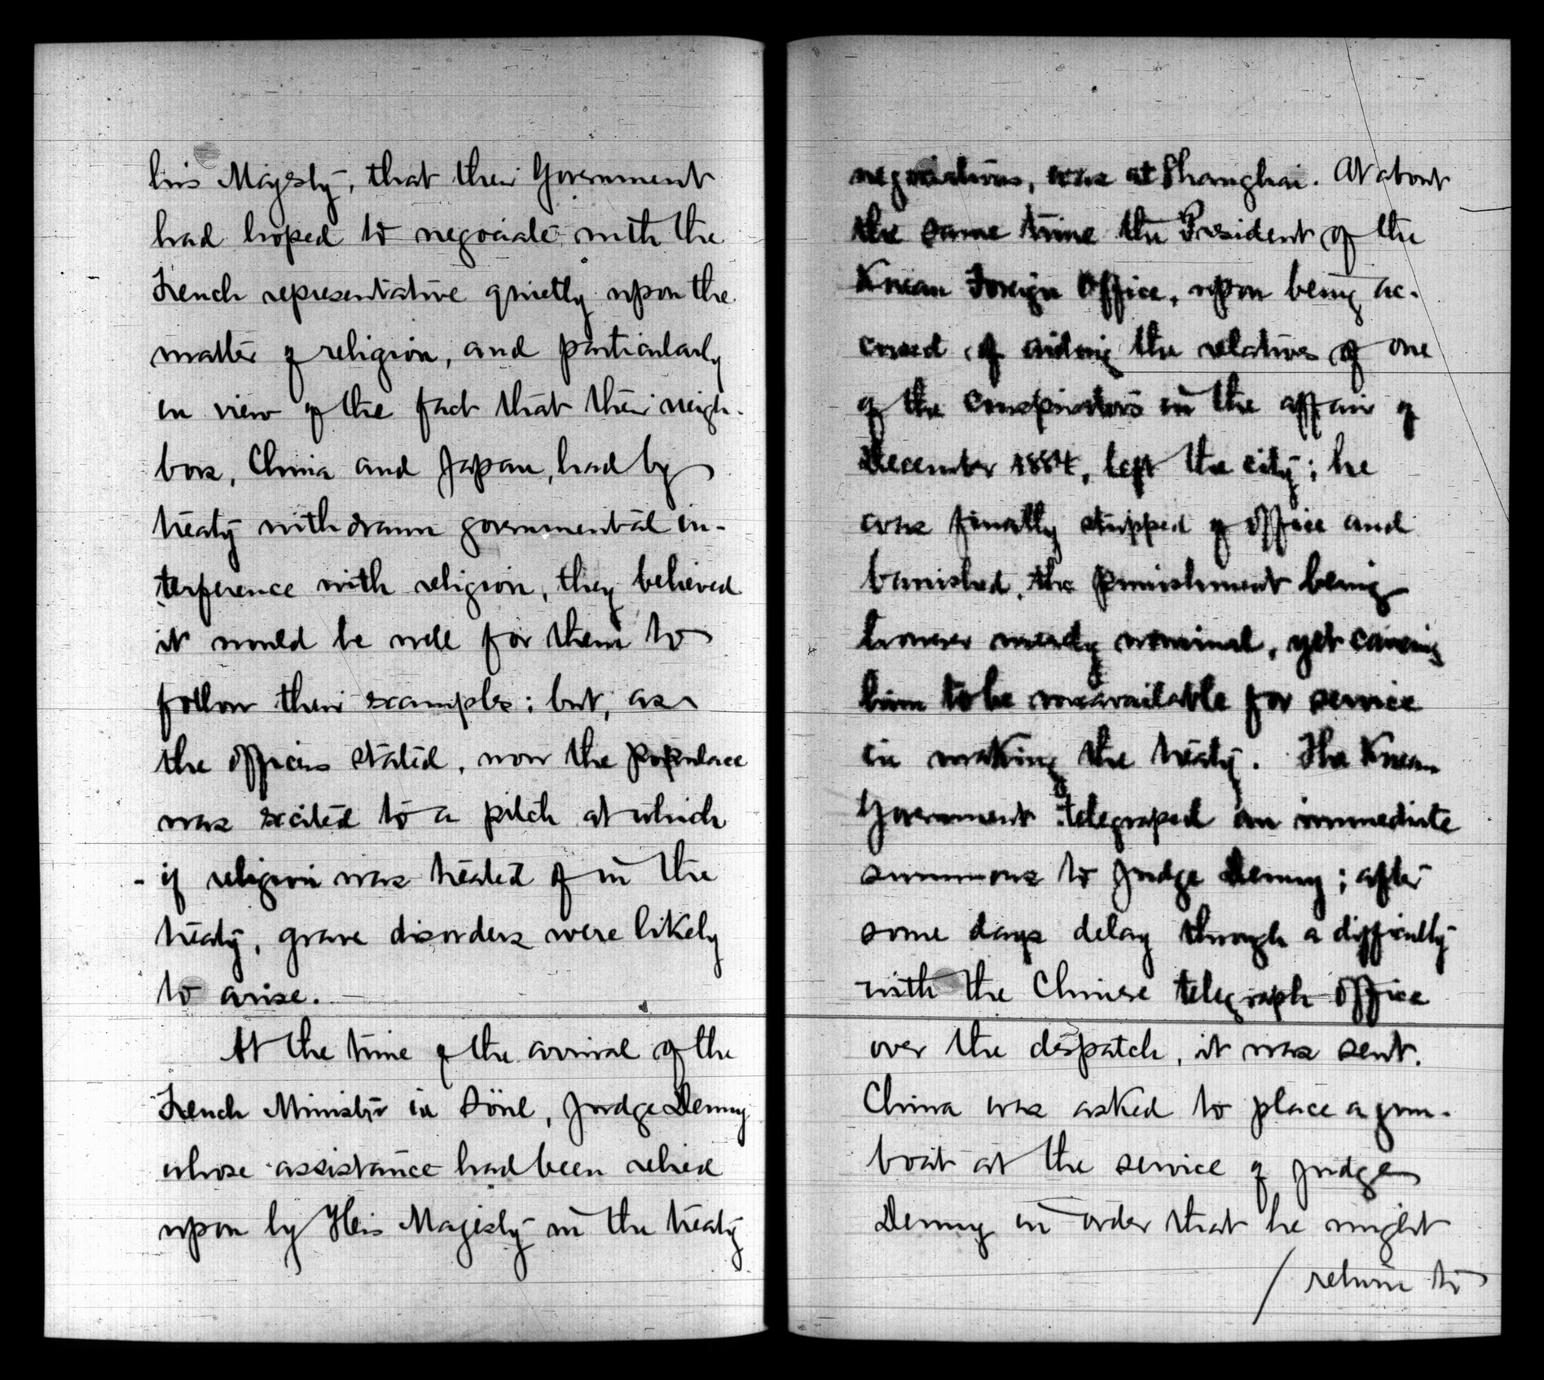 his Majesty, that their Government
had hoped to negociate with the
French representative quietly upon the
matter of religion, and particularly
in view of the fact that their neigh-
bors, China and Japan, had by
treaty withdrawn governmental in-
terference with religion, they believed
it would be well for them to
follow their examples; but, as
the officers stated, now the populace
was excited to a pitch at which
if religion was treated of in the
treaty, grave disorders were likely
to arise.
At the time of the arrival of the
French Minister in Söul, Judge Denny
whose assistance had been relied
upon by His Majesty in the treaty
negociations, was at Shanghai. At about
the same time the President of the
Korean Foreign Office, upon being ac-
cused of aiding the relatives of one
of the conspirators in the affair of
December 1884, left the city; he
was finally stripped of office and
banished, the punishment being
however merely nominal, yet causing
him to be unavailable for service
in making the treaty. The Korean
Government telegraped an immediate
summons to Judge Denny; after
some days delay through a difficulty
with the Chinese telegraph office
over the despatch, it was sent.
China was asked to place a gun-
boat at the service of Judge
Denny in order that he might
/ return to